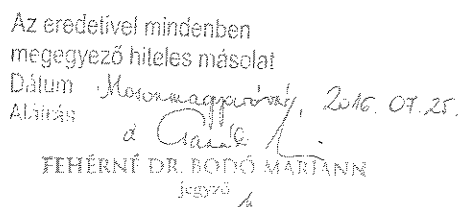 Az eredetivel mindenben
megegyező hiteles másolat
Dátum Mosonmagyaróvár, 2016. 07. 25.
Aláírás
FEHÉRNÉ DR. BODÓ MARIANN
jegyző